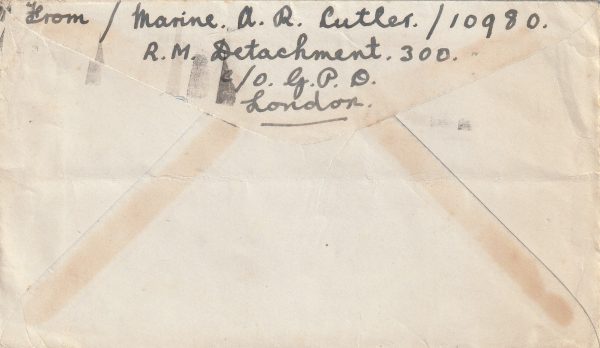 From / Marine. A. R. Cutler. / 10980.
R.M. Detachment. 300.
c/o. G.P.O.
London.